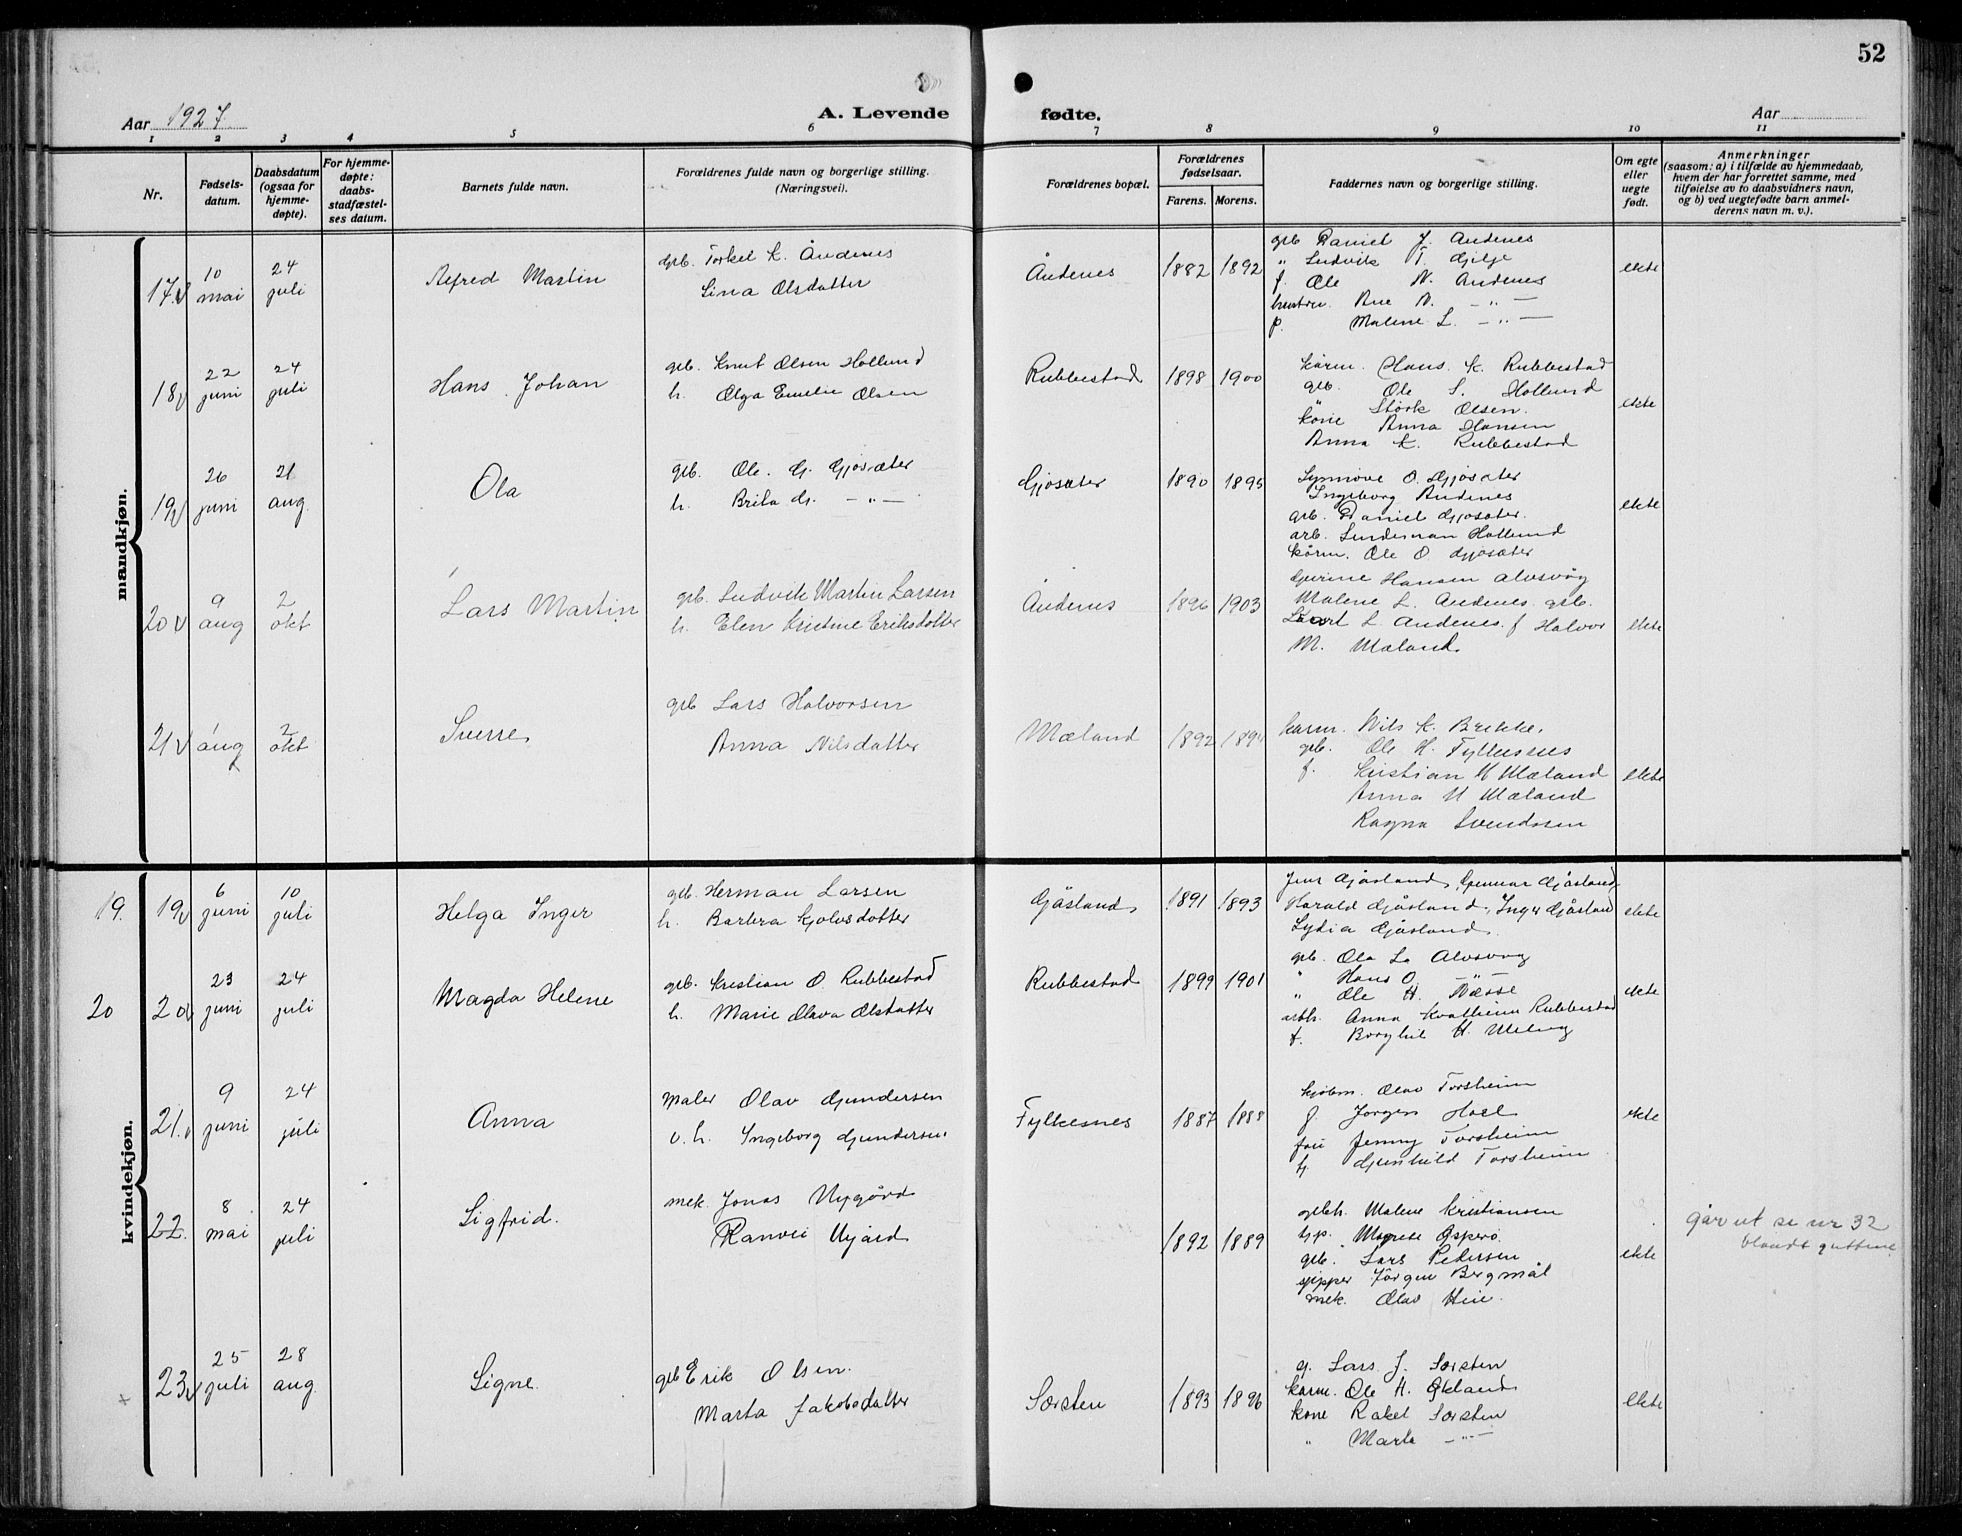 52
Aar 1927
A. Levende
fødte.
Aar
1 2 3 4 5 6 7 8 9 10 11
Nr.
Fødsels-
datum.
Daabsdatum
(ogsaa for
hjemme-
døpte).
For hjemme-
døpte:
daabs-
stadfæstel-
ses datum.
Barnets fulde navn.
Forældrenes fulde navn og borgerlige stilling.
(Næringsvei).
Forældrenes bopæl.
Forældrenes
fødselsaar.
Farens. Morens.
Faddernes navn og borgerlige stilling.
Om egte
eller
uegte
født.
Anmerkninger
(saasom: a) i tilfælde av hjemmedaab,
hvem der har forrettet samme, med
tilføielse av to daabsvidners navn,
og b) ved uegtefødte barn anmel-
derens navn m. v.).
mandkjøn.
17. 10 mai 24 juli
Alfred Martin
gb. Torkel K. Åndenes
Lina Olsdatter
Åndenes 1882 1892
grb Daniel J. Andenes
" Ludvik T. Gilje
f. Ole N. Andenes
hustru Ane N. - " -
p. Malene L. - " -
ekte
18 22 juni 24 juli
Hans Johan
grb. Knut Olsen Hollund
h. Olga Emelie Olsen
Rubbestad 1898 1900
kårm. Hans K. Rubbestad
grb. Ole S. Hollund
" Størk Olsen.
kone Anna Hansen
Anna K. Rubbestad
ekte
19 26 juni 21 aug.
Ola
grb. Ole. G. Gjøsæter
h. Brita G. - " -
Gjøsæter 1890 1895
Synnøve O. Gjøsæter
Ingeborg Andenes
grb. Daniel Gjøsæter.
arb. Lindeman Hollund
kårm. Ole O Gjøsæter
ekte
20 9 aug 2 okt
Lars Martin
grb. Ludvik Martin Larsen
h. Elen Kristine Eriksdatter
Åndenes 1896 1903
Gurine Hansen Alvsvåg
Malene L. Andenes. grb.
L. Andenes. f Halvor
M. Mæland.
ekte
21 1 aug 2 okt
Sverre
grb Lars Halvorsen
Anna Nilsdatter
Mæland 1892
kårm. Nils K. Brekke.
grb. Ole H. Fylkesnes
f. Kristian H Mæland
Anna H Mæland
Ragna Svendsen
ekte
kvindekjøn.
19. 19 6 juni 10 juli
Helga Inger
grb. Herman Larsen
h. Barbra Kjølvsdotter
Gjåsland 1891 1893
Jens Gjåsland, Gunnar Gjåsland,
Harald Gjåsland, Inger Gjåsland
Lydia Gjåsland.
ekte
20 20 23 juni 24 juli
Magda Helene
grb. Kristian O. Rubbestad
h. Marie Olava Olsdatter
Rubbestad 1899 1901
grb. Ola L. Alvsvåg
" Hans O. - " -
" Ole H. Næsse
arbh. Anna Kvalheim Rubbestad
f. Borghil H. Meling
ekte
21. 9 juni 24 juli
Anna
Maler Olav Gundersen
v. h. Ingeborg Gundersen
Fylkesnes 1887 1888
kjøbm. Olav Torsheim
f Jørgen Hoel
fru Jenny Torsheim
h Gunhild Torsheim
ekte
22. 8 mai 24 juli
Sigfrid.
mek. Jonas Nygård
Ranvei Nygård
1892 1889
grbh. Malene Kristiansen
hp. Magrete Asperø.
grb. Lars Pedersen
sjipper Jörgen Bergmål
mek. Olav
ekte
går ut se nr 32
blandt guttene
x 23 25 juli 28 aug.
Signe.
grb Erik Olsen.
Marta Jakobsdatter
Sørsten 1893 1896
g. Lars J. Sørsten
kårm. Ole H. Økland
kone Rakel Sørsten
" Marta - " -
ekte